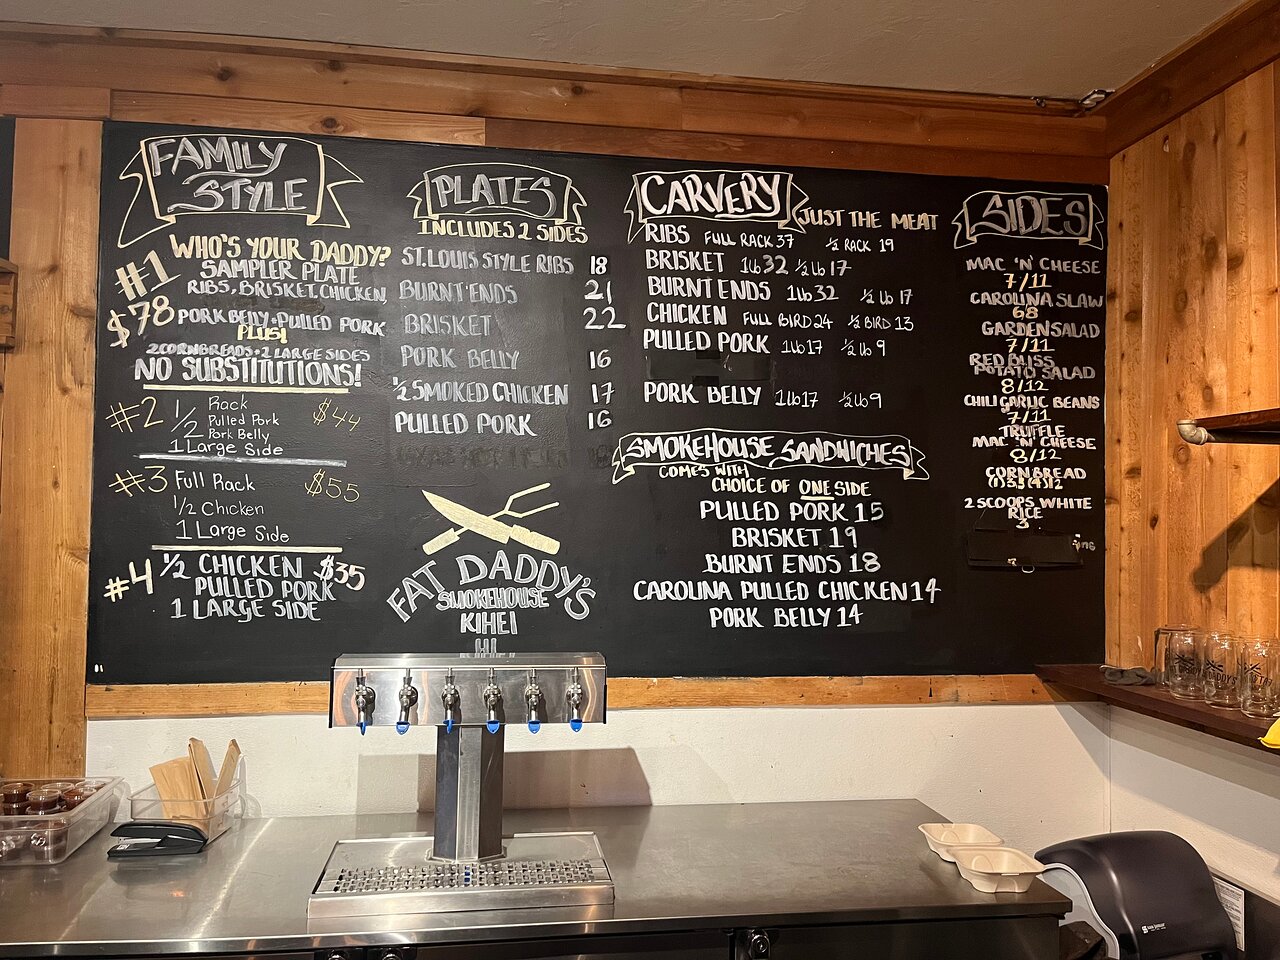 FAMILY
STYLE
#1 WHO'S YOUR DADDY?
SAMPLER PLATE
RIBS, BRISKET, CHICKEN,
$78 PORK BELLY + PULLED PORK
PLUS!
2 CORNBREADS + 2 LARGE SIDES
NO SUBSTITUTIONS!
#2 1/2 Rack $44
Pulled Pork
1/2 Pork Belly
1 Large Side
#3 Full Rack $55
1/2 Chicken
1 Large Side
#4 1/2 CHICKEN $35
PULLED PORK
1 LARGE SIDE
PLATES
INCLUDES 2 SIDES
ST. LOUIS STYLE RIBS 18
BURNT ENDS 21
BRISKET 22
PORK BELLY 16
1/2 SMOKED CHICKEN 17
PULLED PORK 16
FAT DADDY'S
SMOKEHOUSE
KIHEI
HI
CARVERY JUST THE MEAT
RIBS FULL RACK 37 1/2 RACK 19
BRISKET 1lb 32 1/2 lb 17
BURNT ENDS 1lb 32 1/2 lb 17
CHICKEN FULL BIRD 24 1/2 BIRD 13
PULLED PORK 1lb 17 1/2 lb 9
PORK BELLY 1lb 17 1/2 lb 9
SMOKEHOUSE SANDWICHES
COMES WITH
CHOICE OF ONE SIDE
PULLED PORK 15
BRISKET 19
BURNT ENDS 18
CAROLINA PULLED CHICKEN 14
PORK BELLY 14
SIDES
MAC 'N' CHEESE
7/11
CAROLINA SLAW
68
GARDEN SALAD
7/11
RED BLISS
POTATO SALAD
8/12
CHILI GARLIC BEANS
7/11
TRUFFLE
MAC 'N' CHEESE
8/12
CORNBREAD
2 SCOOPS WHITE
RICE
3